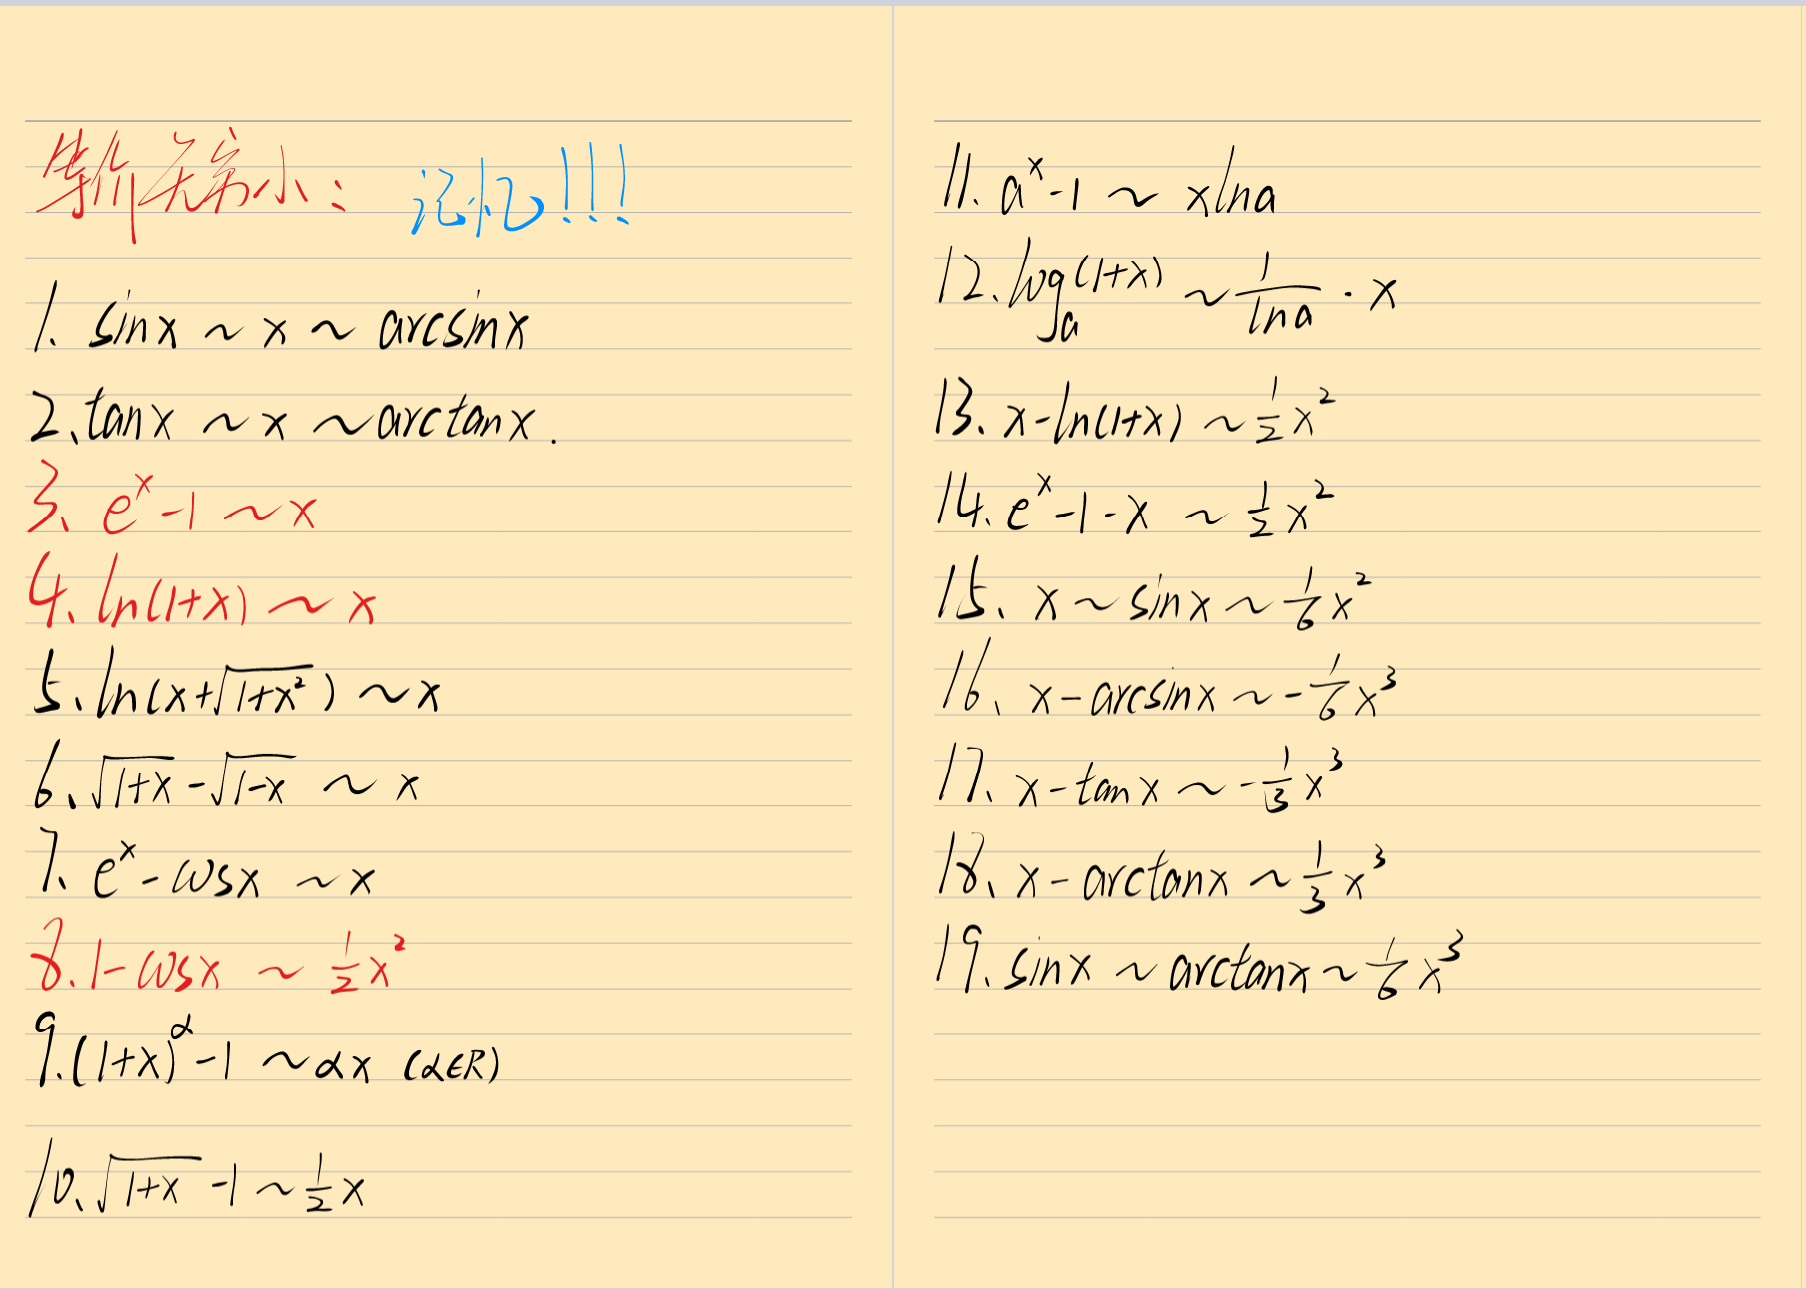 等价无穷小： 记忆!!!
1. sinx ~ x ~ arcsinx
2、tanx ~ x ~ arctanx.
3、eˣ-1 ~ x
4、ln(1+x) ~ x
5、ln(x+√(1+x²)) ~ x
6、√(1+x) - √(1-x) ~ x
7、eˣ - cosx ~ x
8. 1-cosx ~ 1/2 x²
9. (1+x)^α - 1 ~ αx (α∈R)
10、√(1+x) - 1 ~ 1/2 x
11. aˣ-1 ~ xlna
12. log_a(1+x) ~ 1/lna · x
13. x-ln(1+x) ~ 1/2 x²
14. eˣ-1-x ~ 1/2 x²
15、x ~ sinx ~ 1/6 x²
16、x-arcsinx ~ -1/6 x³
17、x-tanx ~ -1/3 x³
18、x-arctanx ~ 1/3 x³
19. sinx ~ arctanx ~ 1/6 x³